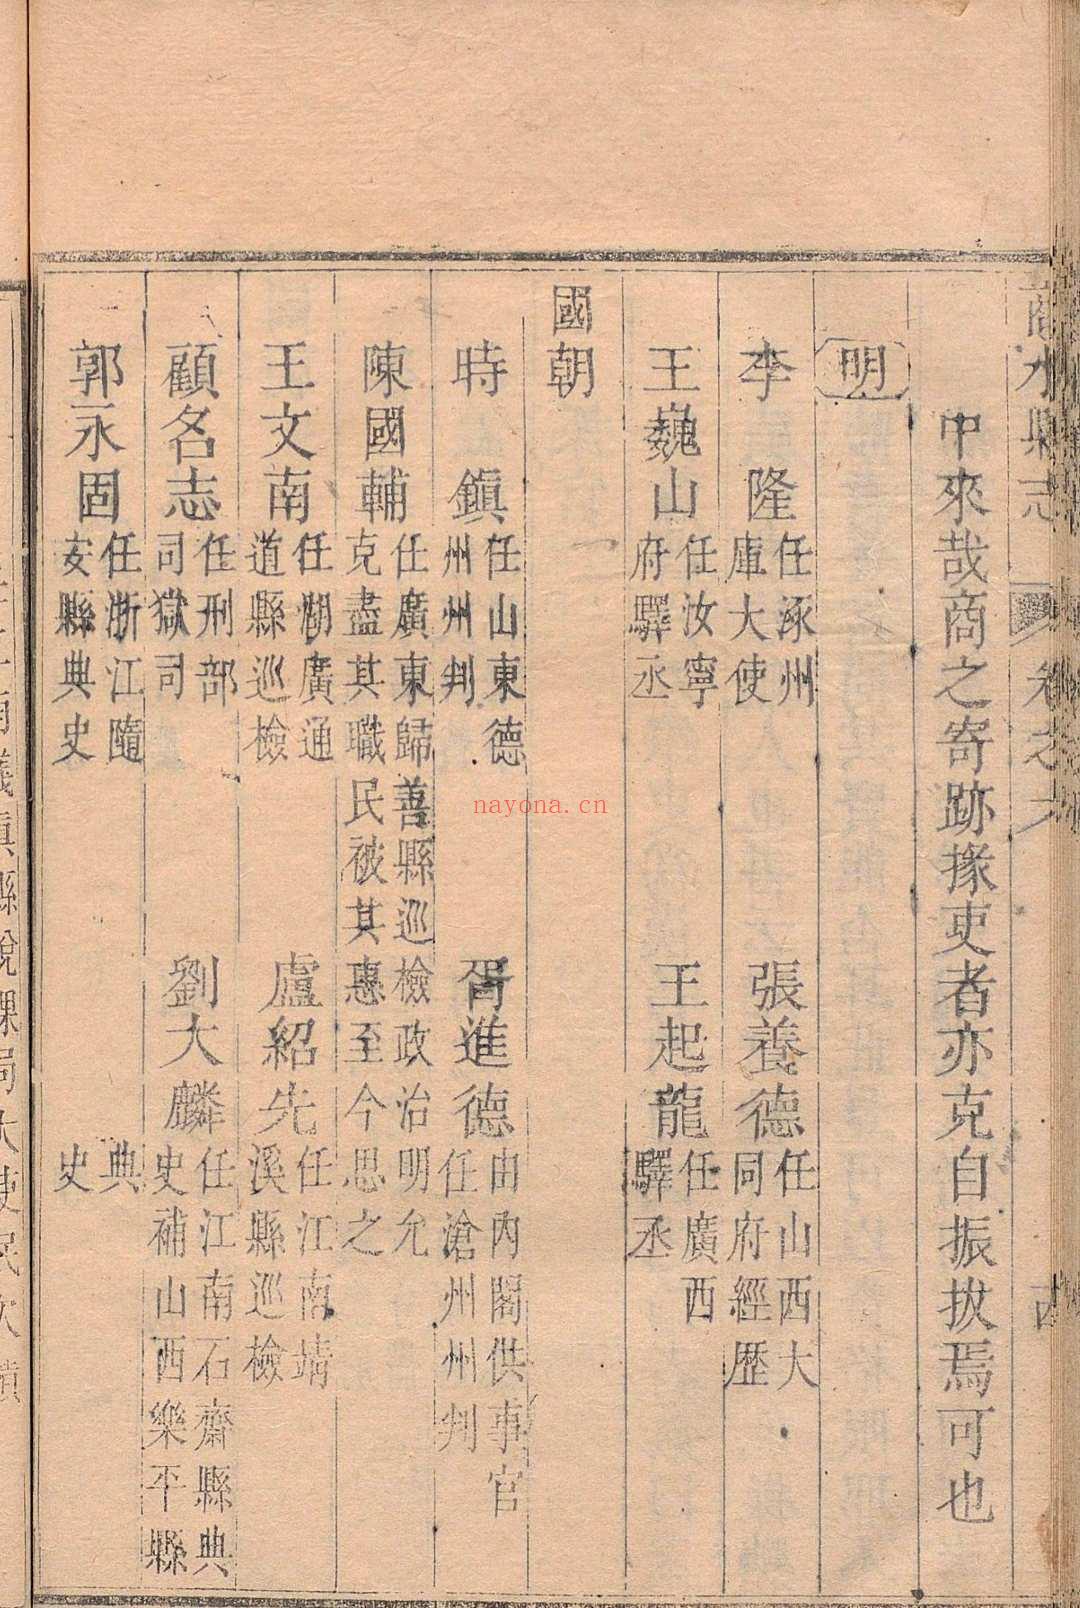 商水縣志 卷之六
中來哉商之寄跡掾吏者亦克自振拔焉可也
明
李隆 任涿州庫大使 張養德 任山西大同府經歷
王巍山 任汝寧府驛丞 王起龍 任廣西驛丞
國朝
時鎮 任山東德州州判 胥進德 由內閣供事官任滄州州判
陳國輔 任廣東歸善縣巡檢政治明允克盡其職民被其惠至今思之
王文南 任湖廣通道縣巡檢 盧紹先 任江南靖溪縣巡檢
顧名志 任刑部司獄司 劉大麟 任江南石齋縣典史補山西樂平縣典史
郭永固 任浙江隨安縣典史
儀真縣稅課局大使
nayona.cn